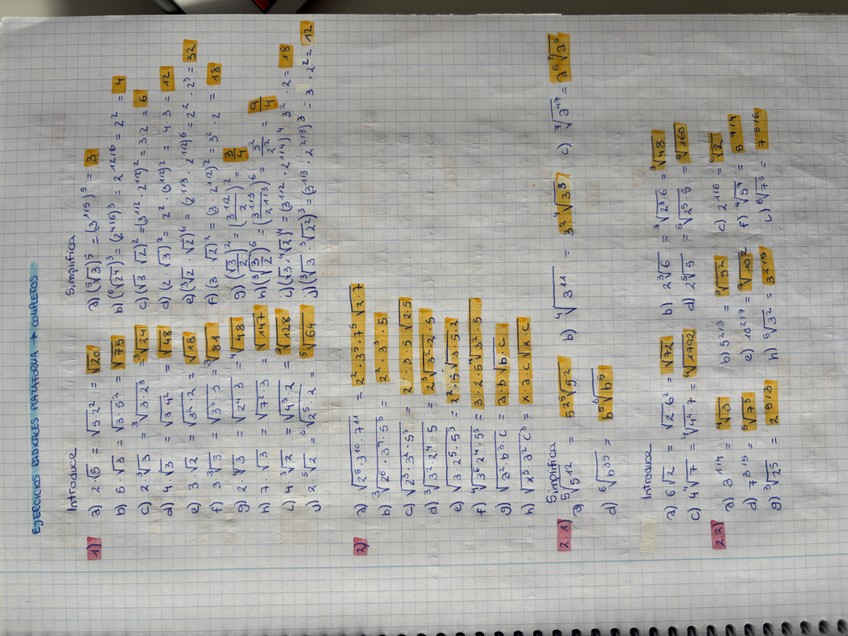 EJERCICIOS RADICALES PLATAFORMA → COMPLETOS
1) Introduce
a) 2·√5 = √5·2² = √20
b) 5·√3 = √3·5² = √75
c) 2·³√3 = ³√3·2³ = ³√24
d) 4·√3 = √3·4² = √48
e) 3·√2 = √3²·2 = √18
f) 3·³√3 = ³√3³·3 = ³√81
g) 2·⁴√3 = ⁴√2⁴·3 = ⁴√48
h) 7·√3 = √7²·3 = √147
i) 4·³√2 = ³√4³·2 = ³√128
j) 2·⁵√2 = ⁵√2⁵·2 = ⁵√64
Simplifica
a) (⁵√3)⁵ = (3^1/5)⁵ = 3
b) (⁶√2⁴)³ = (2^4/6)³ = 2^12/6 = 2² = 4
c) (√3·√2)² = (3^1/2·2^1/2)² = 3·2 = 6
d) (2·√3)² = 2²·(3^1/2)² = 4·3 = 12
e) (³√2·√2)⁶ = (2^1/3·2^1/2)⁶ = 2²·2³ = 32
f) (3·√2)² = (3·2^1/2)² = 3²·2 = 18
g) (√3/2)² = (3^1/2/2)² = 3/4
h) (³√3/³√2)⁶ = (3^1/3/2^1/3)⁶ = 3²/2² = 9/4
i) (√3·⁴√2)⁴ = (3^1/2·2^1/4)⁴ = 3²·2 = 18
j) (³√3·³√2²)³ = (3^1/3·2^2/3)³ = 3·2² = 12
2)
a) √2⁵·3¹⁰·7¹¹ = 2²·3⁵·7⁵·√2·7
b) ³√2⁶·3⁹·5³ = 2²·3³·5
c) √2³·3²·5³ = 2·3·5·√2·5
e) √3·2⁵·5³ = 2²·5·√3·5·2
g) √a²·b³·c = a·b·√b·c
h) √x³·a²·c³ = x·a·c·√x·c
2.1) Simplifica
a) ⁵√5¹² = 5²·⁵√5²
b) ⁴√3¹¹ = 3²·⁴√3³
c) ⁷√3⁴⁷ = 3⁶·⁷√3⁵
d) ⁶√b³⁵ = b⁵·⁶√b⁵
Introduce
a) 6√2 = √2·6² = √72
b) 2³√6 = ³√2³·6 = ³√48
c) 4⁴√7 = ⁴√4⁴·7 = ⁴√1792
d) 2⁵√5 = ⁵√2⁵·5 = ⁵√160
2.2)
a) 3^1/4 = ⁴√3
b) 5^2/3 = ³√5²
c) 2^1/6 = ⁶√2
d) 7^3/5 = ⁵√7³
e) 10^2/7 = ⁷√10²
f) ⁴√5⁷ = 5^7/4
g) ³√2⁵ = 2^5/3
h) ⁵√3² = 3^2/5
i) ⁶√7⁵ = 7^5/6